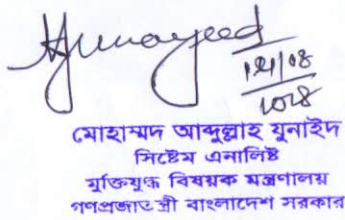 মোহাম্মদ আব্দুল্লাহ যুনাইদ
সিষ্টেম এনালিষ্ট
মুক্তিযুদ্ধ বিষয়ক মন্ত্রণালয়
গণপ্রজাতন্ত্রী বাংলাদেশ সরকার